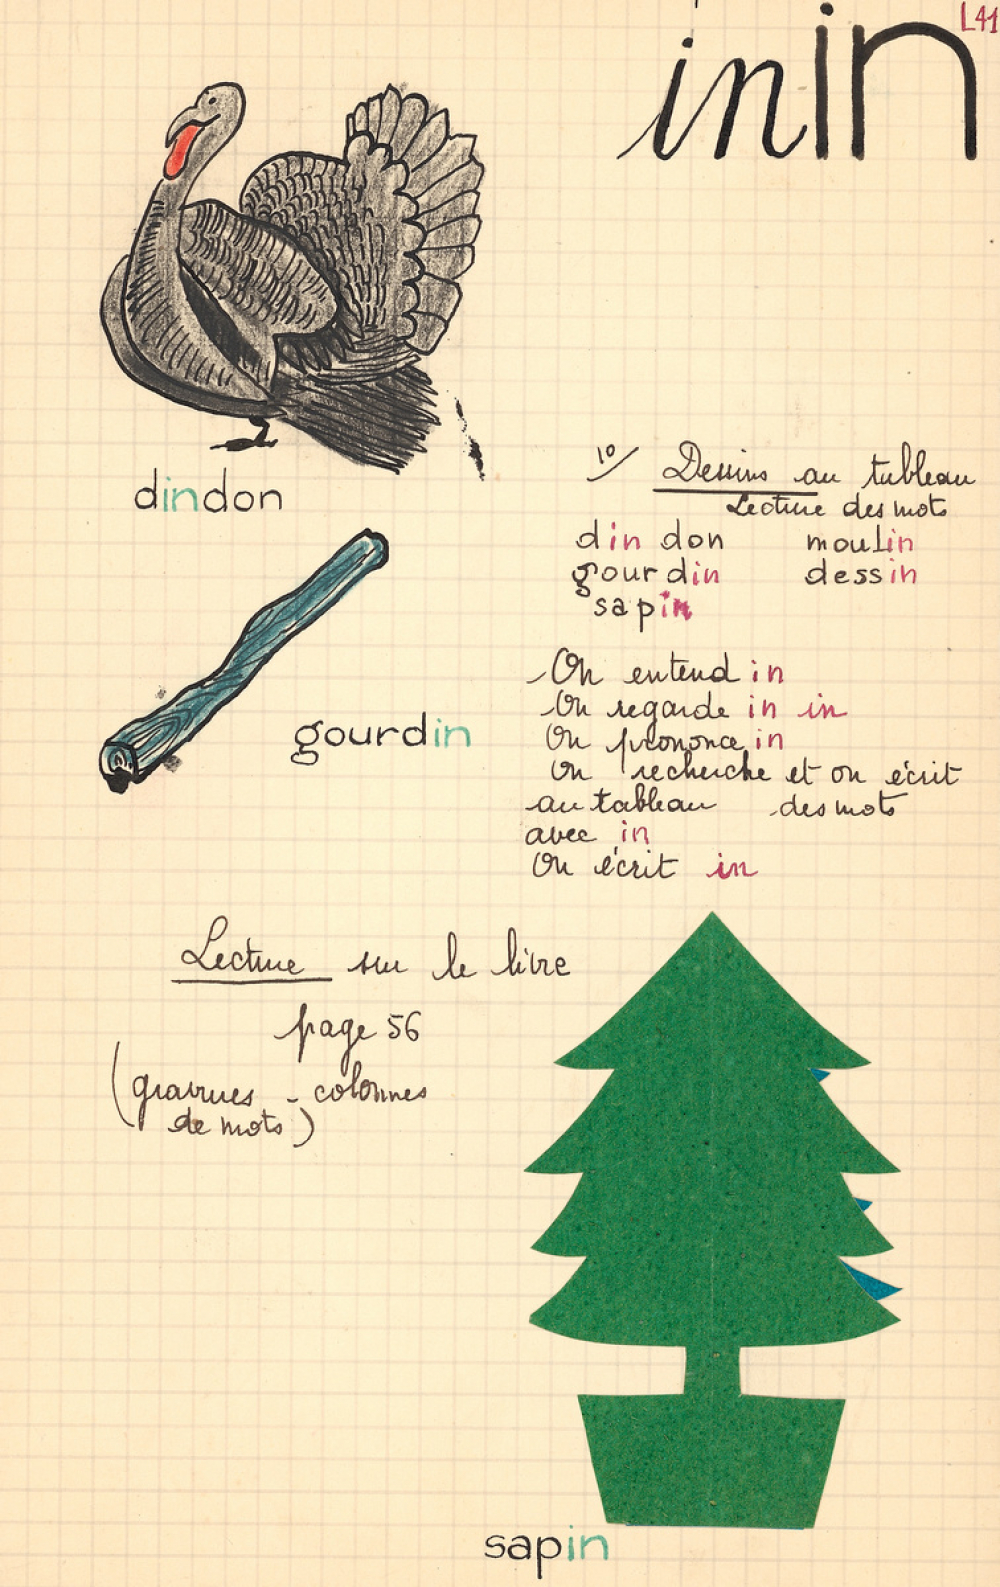 L41
in in
dindon
10/ Dessins au tableau
Lecture des mots
din don moulin
gourdin dessin
sapin
gourdin
On entend in
On regarde in in
On prononce in
On recherche et on écrit
au tableau des mots
avec in
On écrit in
Lecture sur le livre
page 56
(gravures - colonnes
de mots)
sapin